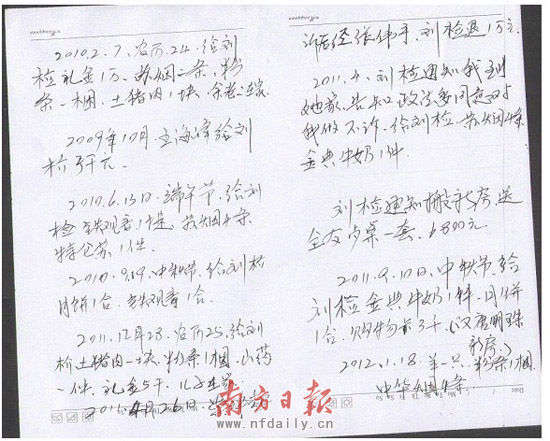 2010.2.7、农历24、给刘
检礼金1万、苏烟二条、粉
条一捆、土猪肉1块、
2009年10月、上海馆给刘
检 5千元
2010.6.15日、端午节、给刘
检铁观音1提、苏烟4条
特仑苏1件。
2010.9.19、中秋节、给刘检
月饼1合、铁观音1合。
2011.12月28、农历25、给刘
检土猪肉一块、粉条1捆、山药
一件、礼金5千、
26日、
诉后经张伟手、刘检退1万元.
2011.4、刘检通知我到
她家、告知政法委同意对
我做不诉、给刘检苏烟4条
金典牛奶1件.
刘检通知搬新房送
全友 桌一套、6800元.
2011.9.10日、中秋节、给
刘检金典牛奶1件、月饼
1合、购物卡3千、(汉唐明珠
新房、)
2012.1.18 羊一只、粉条1捆
南方日报
www.nfdaily.cn